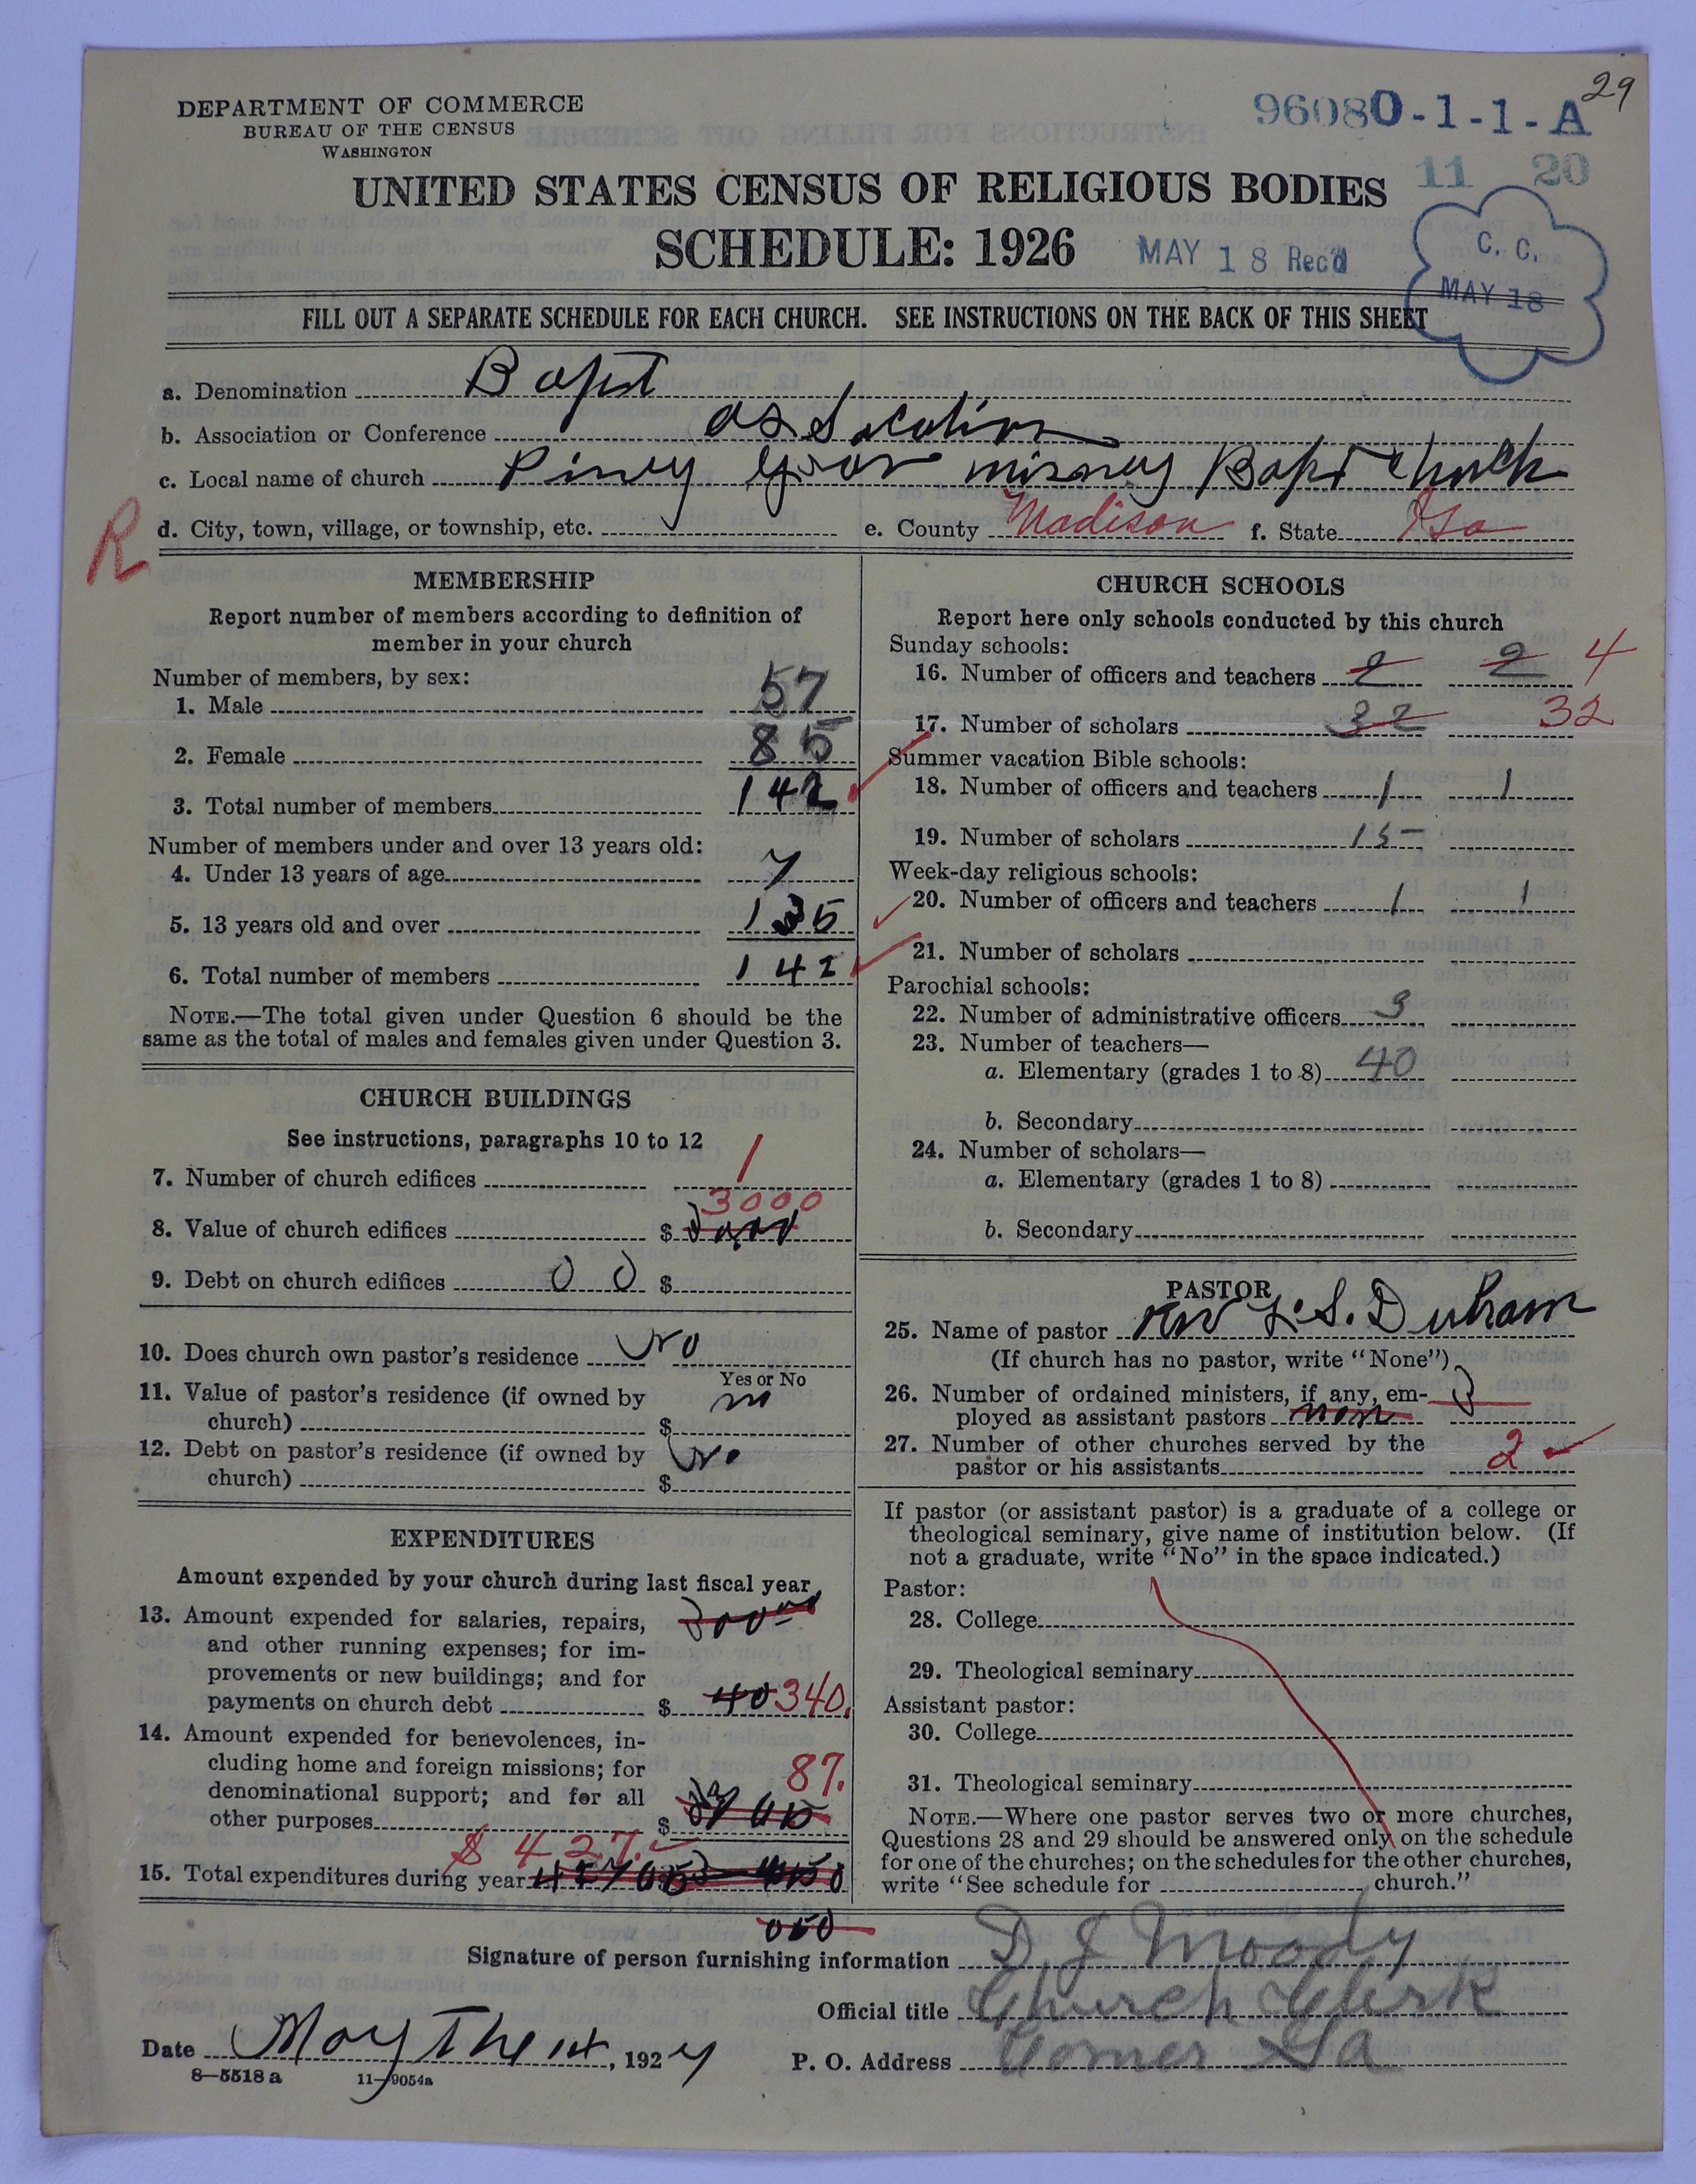 DEPARTMENT OF COMMERCE
BUREAU OF THE CENSUS
WASHINGTON
96080-1-1-A
29
11 20
UNITED STATES CENSUS OF RELIGIOUS BODIES
SCHEDULE: 1926
MAY 18 Rec'd
C. C.
MAY 18
FILL OUT A SEPARATE SCHEDULE FOR EACH CHURCH. SEE INSTRUCTIONS ON THE BACK OF THIS SHEET
a. Denomination Bapst
b. Association or Conference
c. Local name of church Piney Church
d. City, town, village, or township, etc. e. County Madison f. State Ga
R
MEMBERSHIP
Report number of members according to definition of
member in your church
Number of members, by sex:
1. Male 57
2. Female 85
3. Total number of members 142
Number of members under and over 13 years old:
4. Under 13 years of age 7
5. 13 years old and over 135
6. Total number of members 142
NOTE.—The total given under Question 6 should be the
same as the total of males and females given under Question 3.
CHURCH BUILDINGS
See instructions, paragraphs 10 to 12
7. Number of church edifices 1
3000
8. Value of church edifices $
9. Debt on church edifices 0 0 $
10. Does church own pastor's residence No
Yes or No
11. Value of pastor's residence (if owned by
church) $ no
12. Debt on pastor's residence (if owned by
church) $ No
EXPENDITURES
Amount expended by your church during last fiscal year
13. Amount expended for salaries, repairs,
and other running expenses; for im-
provements or new buildings; and for
payments on church debt $ 40 340.
14. Amount expended for benevolences, in-
cluding home and foreign missions; for
denominational support; and for all
other purposes $ 87.
$ 427.
15. Total expenditures during year
CHURCH SCHOOLS
Report here only schools conducted by this church
Sunday schools:
16. Number of officers and teachers 2 2 4
17. Number of scholars 32 32
Summer vacation Bible schools:
18. Number of officers and teachers 1 1
19. Number of scholars 15
Week-day religious schools:
20. Number of officers and teachers 1 1
21. Number of scholars
Parochial schools:
22. Number of administrative officers 3
23. Number of teachers—
a. Elementary (grades 1 to 8) 40
b. Secondary
24. Number of scholars—
a. Elementary (grades 1 to 8)
b. Secondary
PASTOR
25. Name of pastor Rev L. S. Durham
(If church has no pastor, write "None")
26. Number of ordained ministers, if any, em-
ployed as assistant pastors non
27. Number of other churches served by the
pastor or his assistants 2
If pastor (or assistant pastor) is a graduate of a college or
theological seminary, give name of institution below. (If
not a graduate, write "No" in the space indicated.)
Pastor:
28. College
29. Theological seminary
Assistant pastor:
30. College
31. Theological seminary
NOTE.—Where one pastor serves two or more churches,
Questions 28 and 29 should be answered only on the schedule
for one of the churches; on the schedules for the other churches,
write "See schedule for church."
Signature of person furnishing information D. J. Moody
Official title Church Clerk
Date May The 14, 1927
P. O. Address Comer Ga
8—5518 a 11—9054a